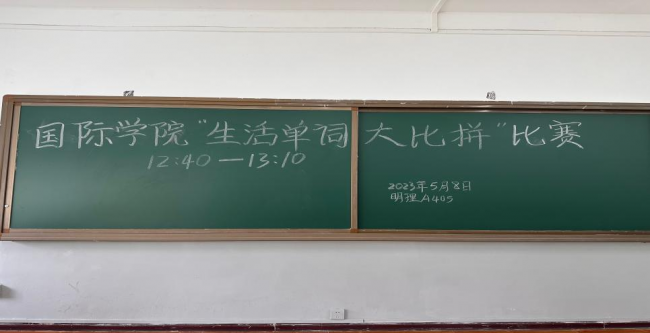 国际学院“生活单词大比拼”比赛
12:40—13:10
2023年5月8日
明理A405